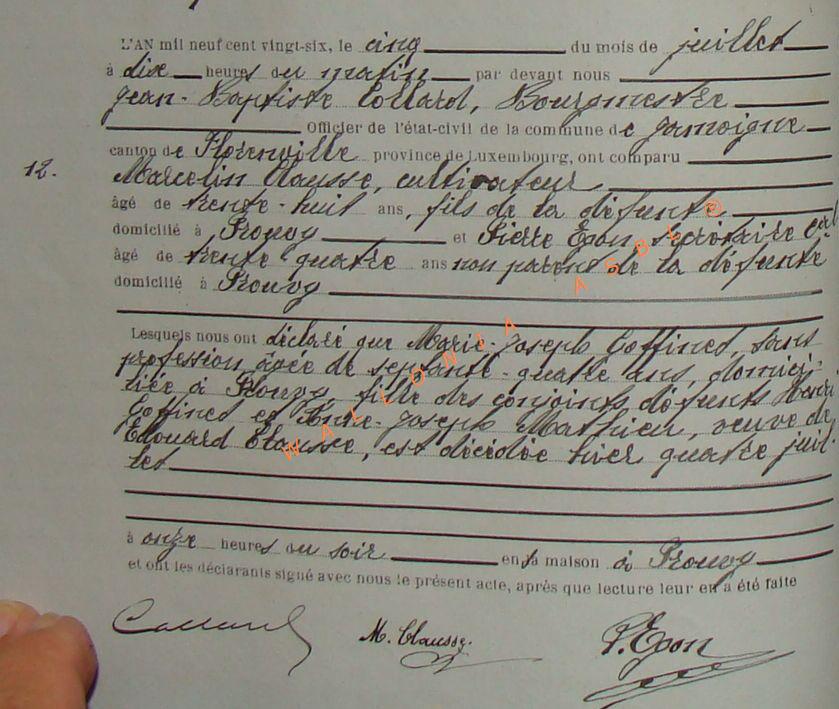 L'AN mil neuf cent vingt-six, le cinq du mois de juillet
à dix heures du matin par devant nous
Jean-Baptiste Collard, Bourgmestre
Officier de l'état-civil de la commune de Jamoigne
canton de Florenville province de Luxembourg, ont comparu
12.
Marcelin Clausse, cultivateur
âgé de trente-huit ans, fils de la défunte
domicilié à Prouvy et Pierre Egon, secrétaire
âgé de trente quatre ans non parent de la défunte
domicilié à Prouvy
Lesquels nous ont déclaré que Marie-Joseph Goffinet, sans
profession, âgée de septante-quatre ans, domici-
liée à Prouvy, fille des conjoints défunts Henri
Goffinet et Anne-Joseph Mathieu, veuve de
Edouard Clausse, est décédée hier quatre juil-
let
à onze heures du soir en sa maison à Prouvy
et ont les déclarants signé avec nous le présent acte, après que lecture leur en a été faite
Collard M. Clausse. P. Egon
WALLONIA ASBL ©